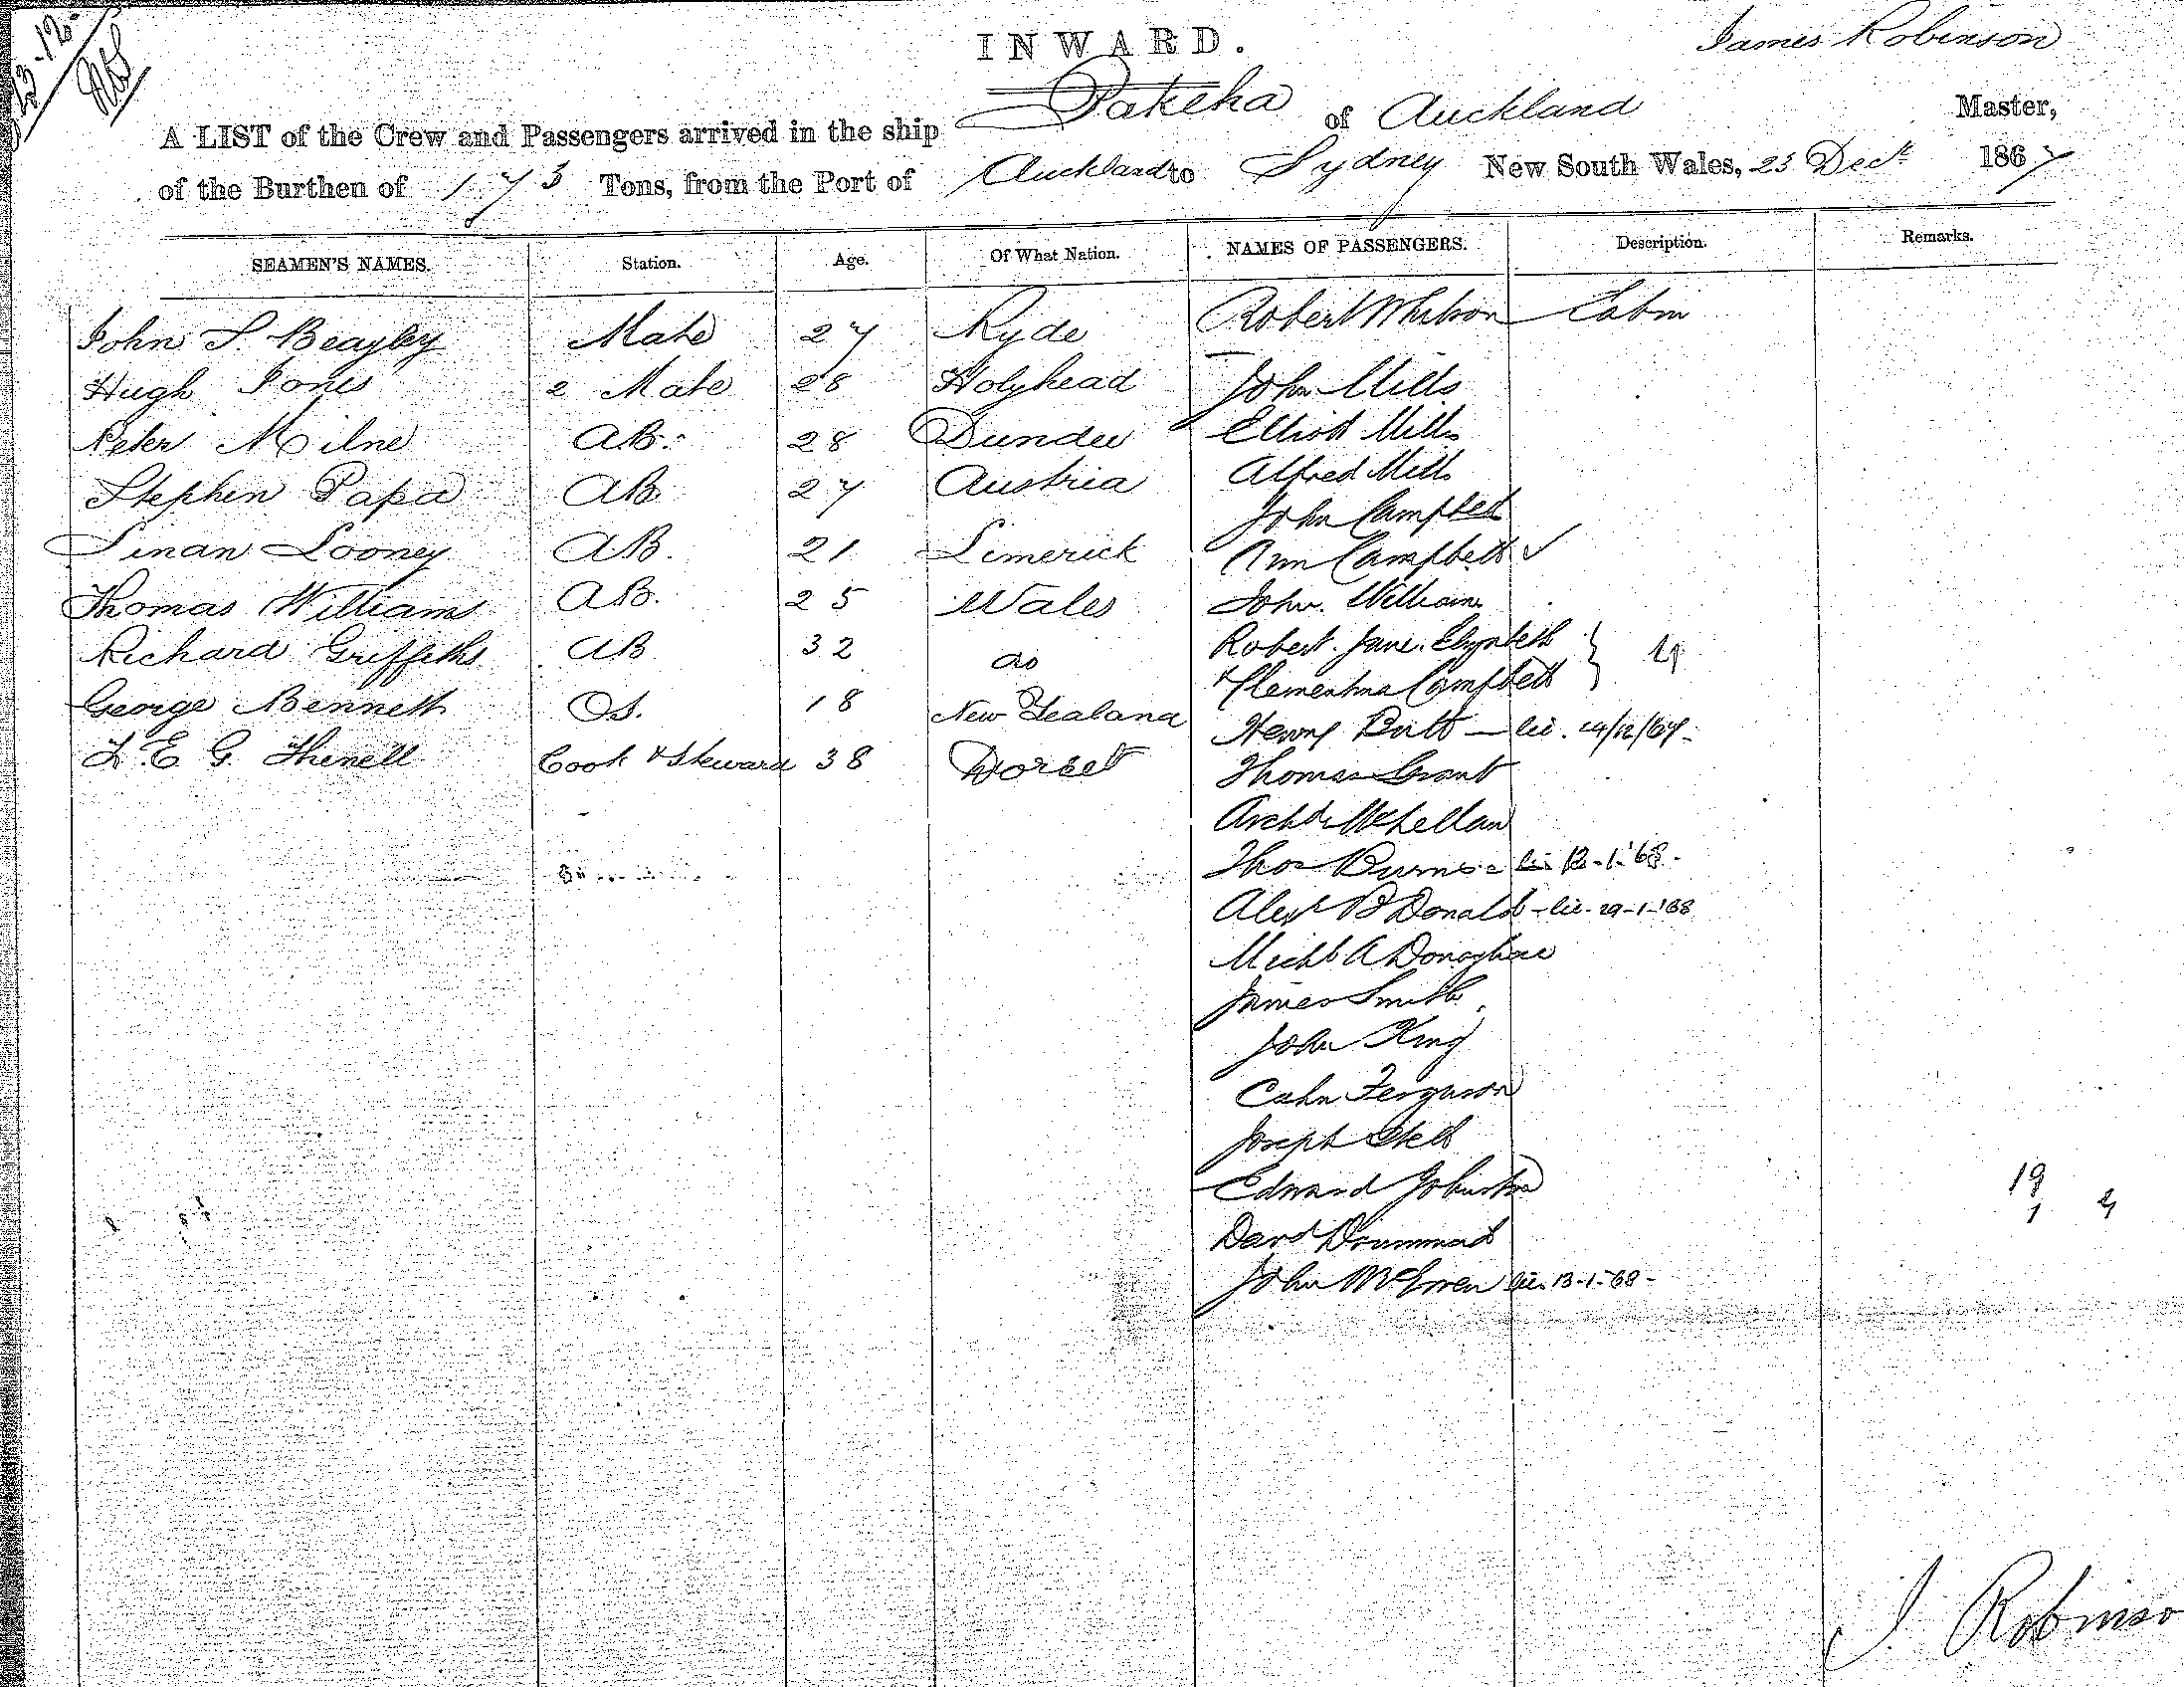 23-12-
INWARD.
James Robinson
A LIST of the Crew and Passengers arrived in the ship Pakeha of Auckland Master,
of the Burthen of 173 Tons, from the Port of Auckland to Sydney New South Wales, 23 Decr 1867
SEAMEN'S NAMES. Station. Age. Of What Nation. NAMES OF PASSENGERS. Description. Remarks.
John S. Beagley Mate 27 Ryde Robert Cabin
Hugh Jones 2 Mate 28 Holyhead John Mills
Peter Milne AB. 28 Dundee Elliott Mills
Stephen Papa AB 27 Austria Alfred Mills
John Campbell
Looney AB. 21 Limerick Ann Campbell ✓
Thomas Williams AB. 25 Wales John. Williams
Richard Griffiths AB 32 do Robert. Jane. Elizabeth
& Clementina Campbell
George Bennett OS. 18 New Zealand Henry Butt — lic. 24/12/67.
G. Cook & Steward 38 Dorset Thomas Grant
Archd McLellan
Thos Burns - lic 13-1-'68.
Alexr Donald - lic. 29-1-'68
Michl A Donaghue
James Smith
John King
Ferguson
Joseph
Edward Johnston
David Drummond
John McEwen lic. 13-1-'68-
19
1 4
J Robinso